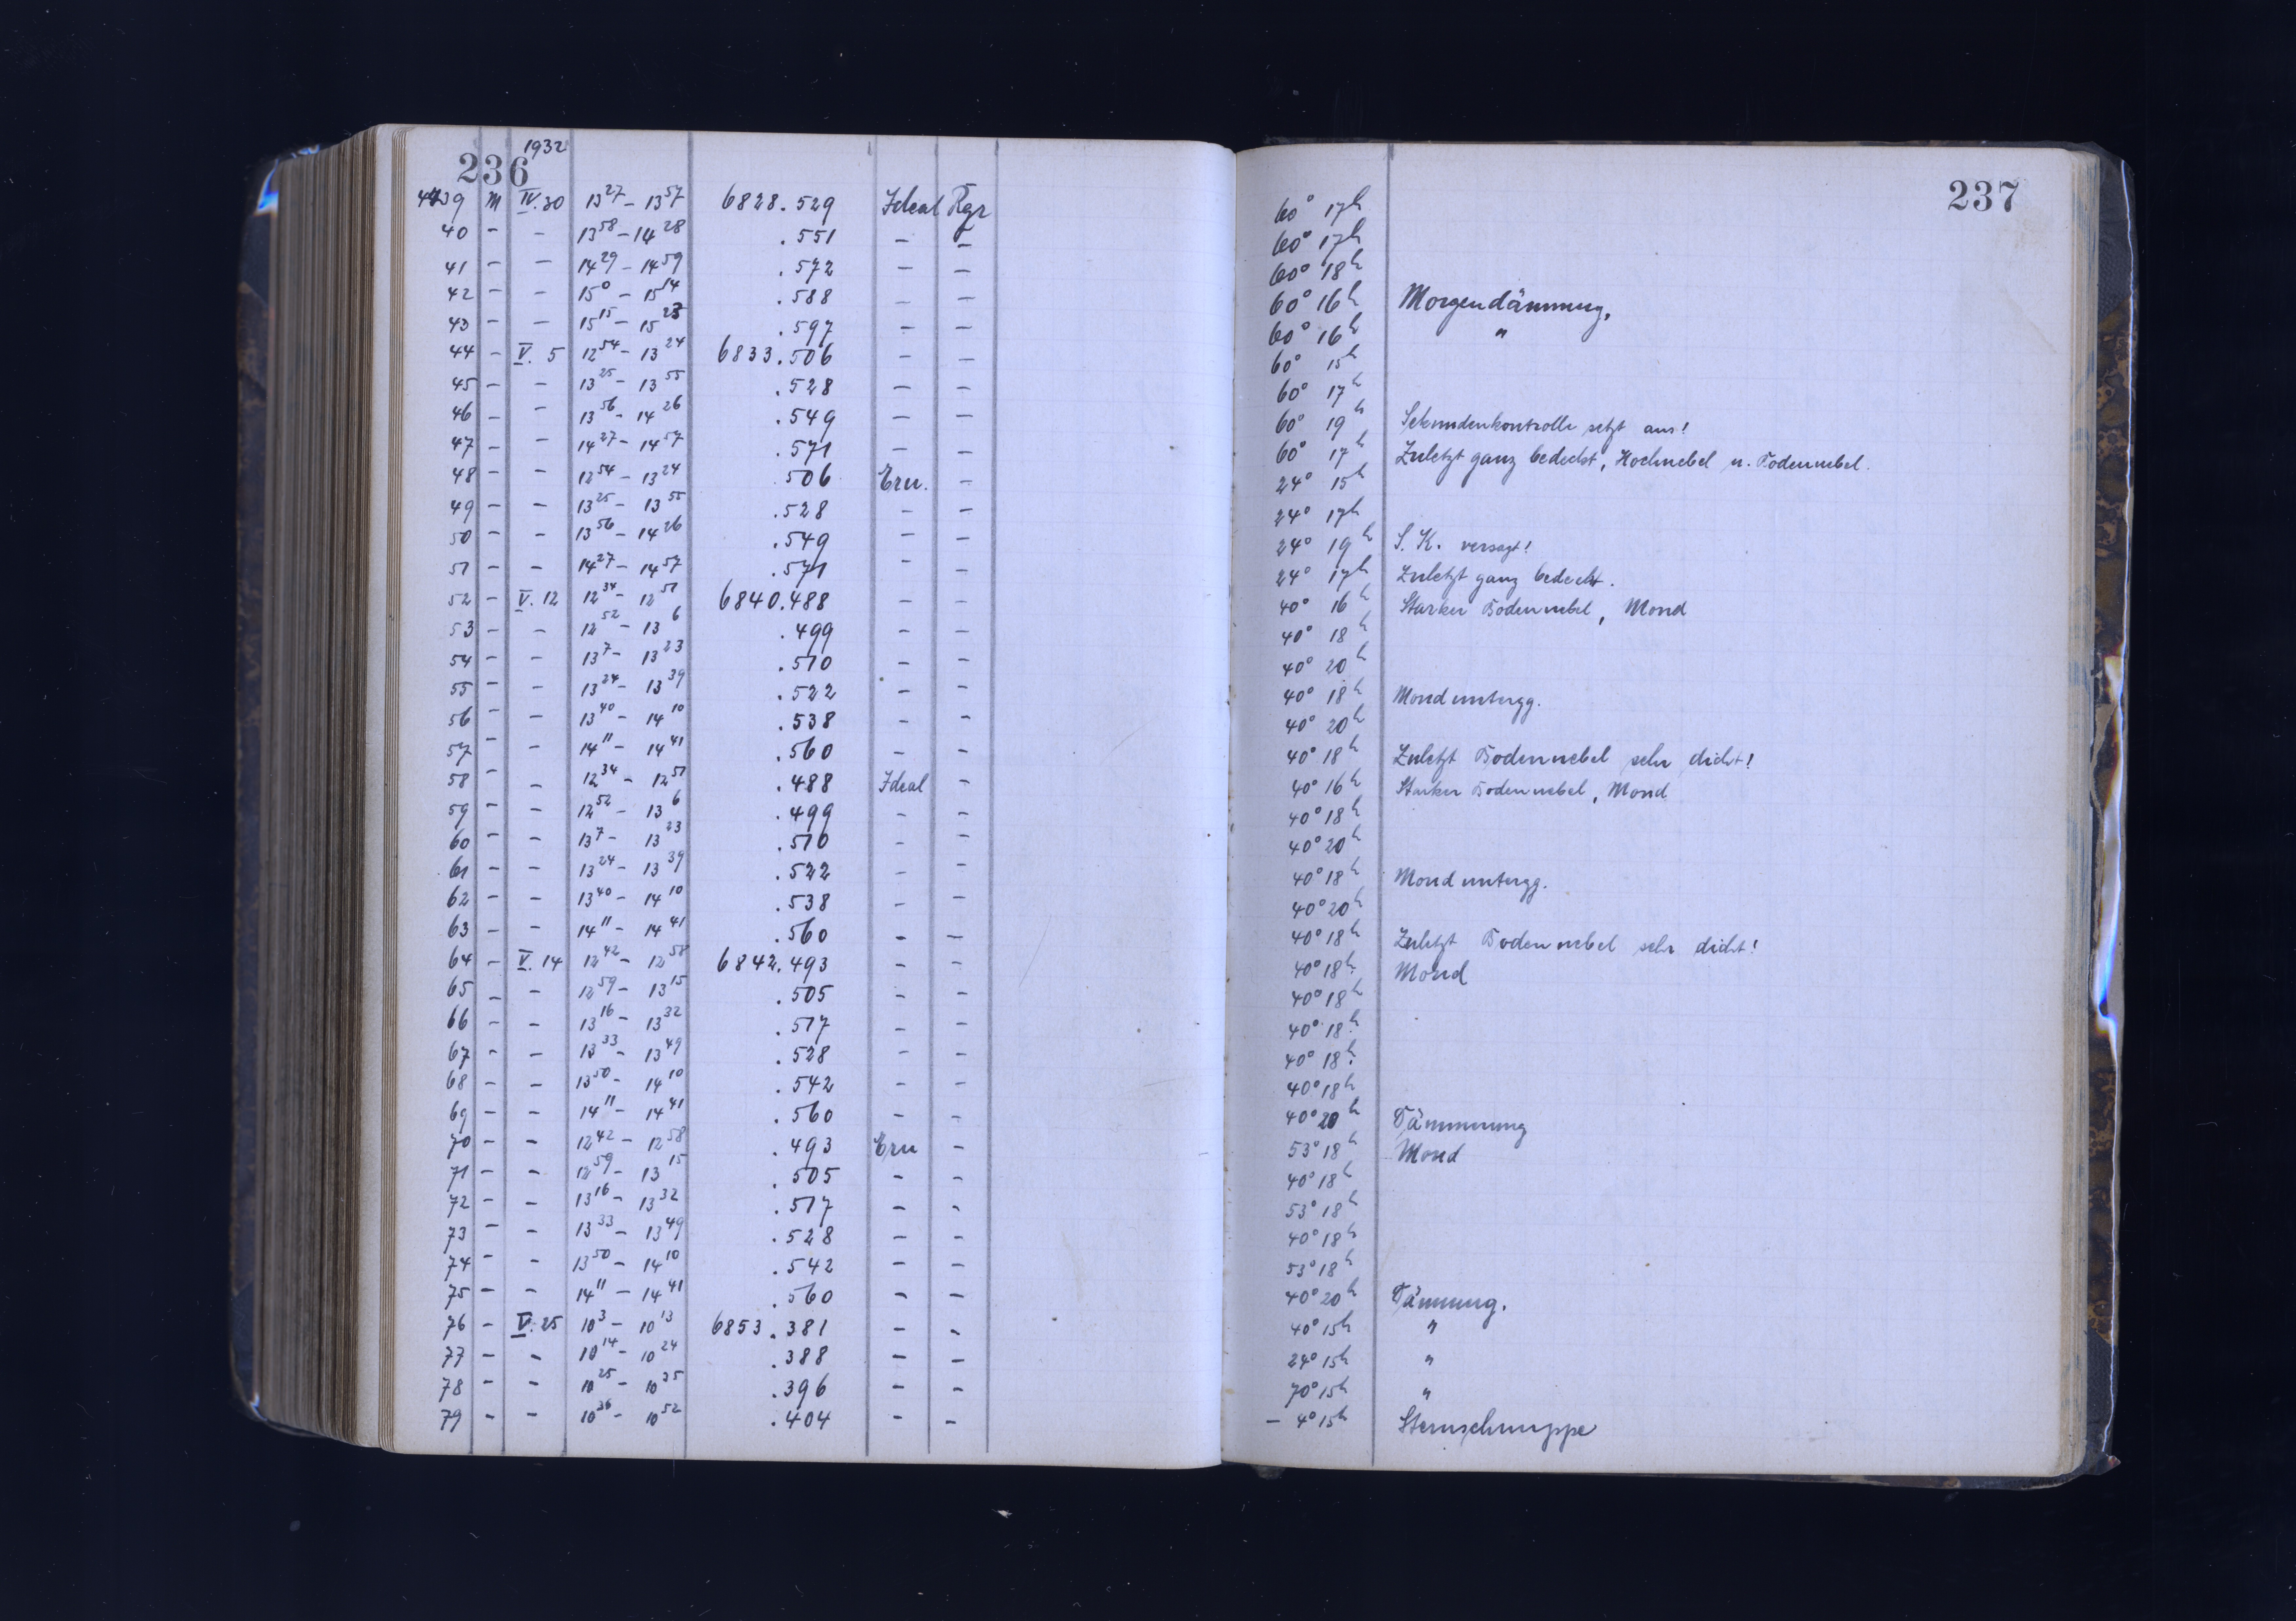 236 1932
4439 M IV.30 13 27 – 13 57 6828.529 Ideal Rgr
40 – – 13 58 – 14 28 .551 – –
41 – – 14 29 – 14 59 .572 – –
42 – – 15 0 – 15 14 .588 – –
43 – – 15 15 – 15 23 .597 – –
44 – V. 5 12 54 – 13 24 6833.506 – –
45 – – 13 25 – 13 55 .528 – –
46 – – 13 56 – 14 26 .549 – –
47 – – 14 27 – 14 57 .571 – –
48 – – 12 54 – 13 24 506 Ern. –
49 – – 13 25 – 13 55 .528 – –
50 – – 13 56 – 14 26 .549 – –
51 – – 14 27 – 14 57 .571 – –
52 – V. 12 12 34 – 12 51 6840.488 – –
53 – – 12 52 – 13 6 .499 – –
54 – – 13 7 – 13 23 .510 – –
55 – – 13 24 – 13 39 .522 – –
56 – – 13 40 – 14 10 .538 – –
57 – – 14 11 – 14 41 .560 – –
58 – – 12 34 – 12 51 .488 Ideal –
59 – – 12 52 – 13 6 .499 – –
60 – – 13 7 – 13 23 .510 – –
61 – – 13 24 – 13 39 .522 – –
62 – – 13 40 – 14 10 .538 – –
63 – – 14 11 – 14 41 .560 – –
64 – V. 14 12 42 – 12 58 6842.493 – –
65 – – 12 59 – 13 15 .505 – –
66 – – 13 16 – 13 32 .517 – –
67 – – 13 33 – 13 49 .528 – –
68 – – 13 50 – 14 10 .542 – –
69 – – 14 11 – 14 41 .560 – –
70 – – 12 42 – 12 58 .493 Ern –
71 – – 12 59 – 13 15 .505 – –
72 – – 13 16 – 13 32 .517 – –
73 – – 13 33 – 13 49 .528 – –
74 – – 13 50 – 14 10 .542 – –
75 – – 14 11 – 14 41 .560 – –
76 – V. 25 10 3 – 10 13 6853.381 – –
77 – – 10 14 – 10 24 .388 – –
78 – – 10 25 – 10 35 .396 – –
79 – – 10 36 – 10 52 .404 – –
237
60° 17h
60° 17h
60° 18h
60° 16h Morgendämmug.
60° 16h "
60° 15h
60° 17h
60° 19h Sekundenkontrolle setzt aus!
60° 17h Zuletzt ganz bedeckt, Hochnebel u. Bodennebel.
24° 15h
24° 17h
24° 19h S. K. versagt!
24° 17h Zuletzt ganz bedeckt.
40° 16h Starker Bodennebel, Mond
40° 18h
40° 20h
40° 18h Monduntergg.
40° 20h
40° 18h Zuletzt Bodennebel sehr dicht!
40° 16h Starker Bodennebel, Mond
40° 18h
40° 20h
40° 18h Monduntergg.
40° 20h
40° 18h Zuletzt Bodennebel sehr dicht!
40° 18h Mond
40° 18h
40° 18h
40° 18h
40° 18h
40° 20h Dämmerung
53° 18h Mond
40° 18h
53° 18h
40° 18h
53° 18h
40° 20h Dämmug.
40° 15h "
24° 15h "
70° 15h "
– 4° 15h Sternschnuppe